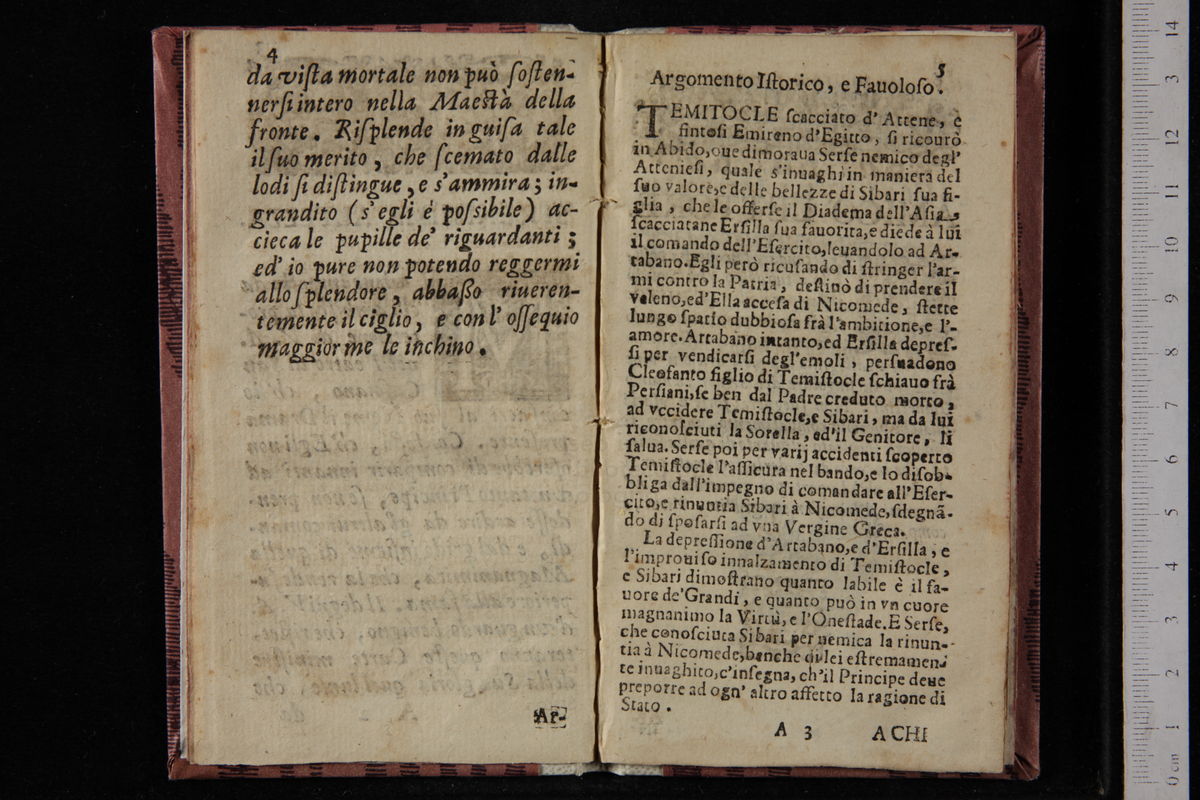 4
da viſta mortale non può ſoſten-
nerſi intero nella Maeſtà della
fronte. Riſplende in guiſa tale
il ſuo merito, che ſcemato dalle
lodi ſi diſtingue, e s'ammira; in-
grandito (s'egli é poſsibile) ac-
cieca le pupille de' riguardanti;
ed' io pure non potendo reggermi
allo ſplendore, abbaſſo riueren-
temente il ciglio, e con l' oſſequio
maggior me le inchino.
Ar-
5
Argomento Iſtorico, e Fauoloſo.
TEMITOCLE ſcacciato d' Attene, è
fintoſi Emireno d'Egitto, ſi ricourò
in Abido, oue dimoraua Serſe nemico degl'
Attenieſi, quale s'inuaghì in maniera del
ſuo valore, e delle bellezze di Sibari ſua fi-
glia, che le offerſe il Diadema dell'Aſia,
ſcacciatane Erſilla ſua fauorita, e diede à lui
il comando dell'Eſercito, leuandolo ad Ar-
tabano. Egli però ricuſando di ſtringer l'ar-
mi contro la Patria, deſtinò di prendere il
veleno, ed' Ella acceſa di Nicomede, ſtette
lungo ſpatio dubbioſa frà l'ambitione, e l'-
amore. Artabano intanto, ed Erſilla depreſ-
ſi per vendicarſi degl'emoli, perſuadono
Cleofanto figlio di Temiſtocle ſchiauo frà
Perſiani, ſe ben dal Padre creduto morto,
ad vccidere Temiſtocle, e Sibari, ma da lui
riconoſciuti la Sorella, ed'il Genitore, li
ſalua. Serſe poi per varij accidenti ſcoperto
Temiſtocle l'aſſicura nel bando, e lo diſob-
bliga dall'impegno di comandare all'Eſer-
cito, e rinuntia Sibari à Nicomede, ſdegnã-
do di ſpoſarſi ad vna Vergine Greca.
La depreſſione d'Artabano, e d'Erſilla, e
l'improuiſo innalzamento di Temiſtocle,
e Sibari dimoſtrano quanto labile è il fa-
uore de'Grandi, e quanto può in vn cuore
magnanimo la Virtù, e l'Oneſtade. E Serſe,
che conoſciuta Sibari per nemica la rinun-
tia à Nicomede, benche di lei eſtremamen-
te inuaghito, c'inſegna, ch'il Principe deue
preporre ad ogn' altro affetto la ragione di
Stato.
A 3 A CHI
0 cm 1 2 3 4 5 6 7 8 9 10 11 12 3 14